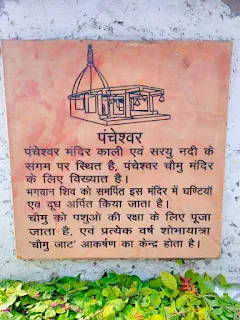 पंचेश्वर
पंचेश्वर मंदिर काली एवं सरयु नदी के
संगम पर स्थित है, पंचेश्वर चौमु मंदिर
के लिए विख्यात है।
भगवान शिव को समर्पित इस मंदिर में घण्टियाँ
एव दूध अर्पित किया जाता है।
चौमु को पशुओ की रक्षा के लिए पूजा
जाता है, एवं प्रत्येक वर्ष शोभायात्रा
'चौमु जाट' आकर्षण का केन्द्र होता है।